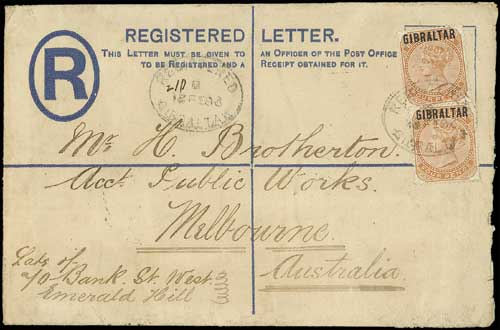 REGISTERED LETTER.
THIS LETTER MUST BE GIVEN TO AN OFFICER OF THE POST OFFICE
TO BE REGISTERED AND A RECEIPT OBTAINED FOR IT.
R
REGISTERED
GIBRALTAR
GIBRALTAR
GIBRALTAR
Mr H. Brotherton.
Acct. Public Works.
Melbourne.
Australia.
Late of
a/o Bank. St. West
Emerald Hill